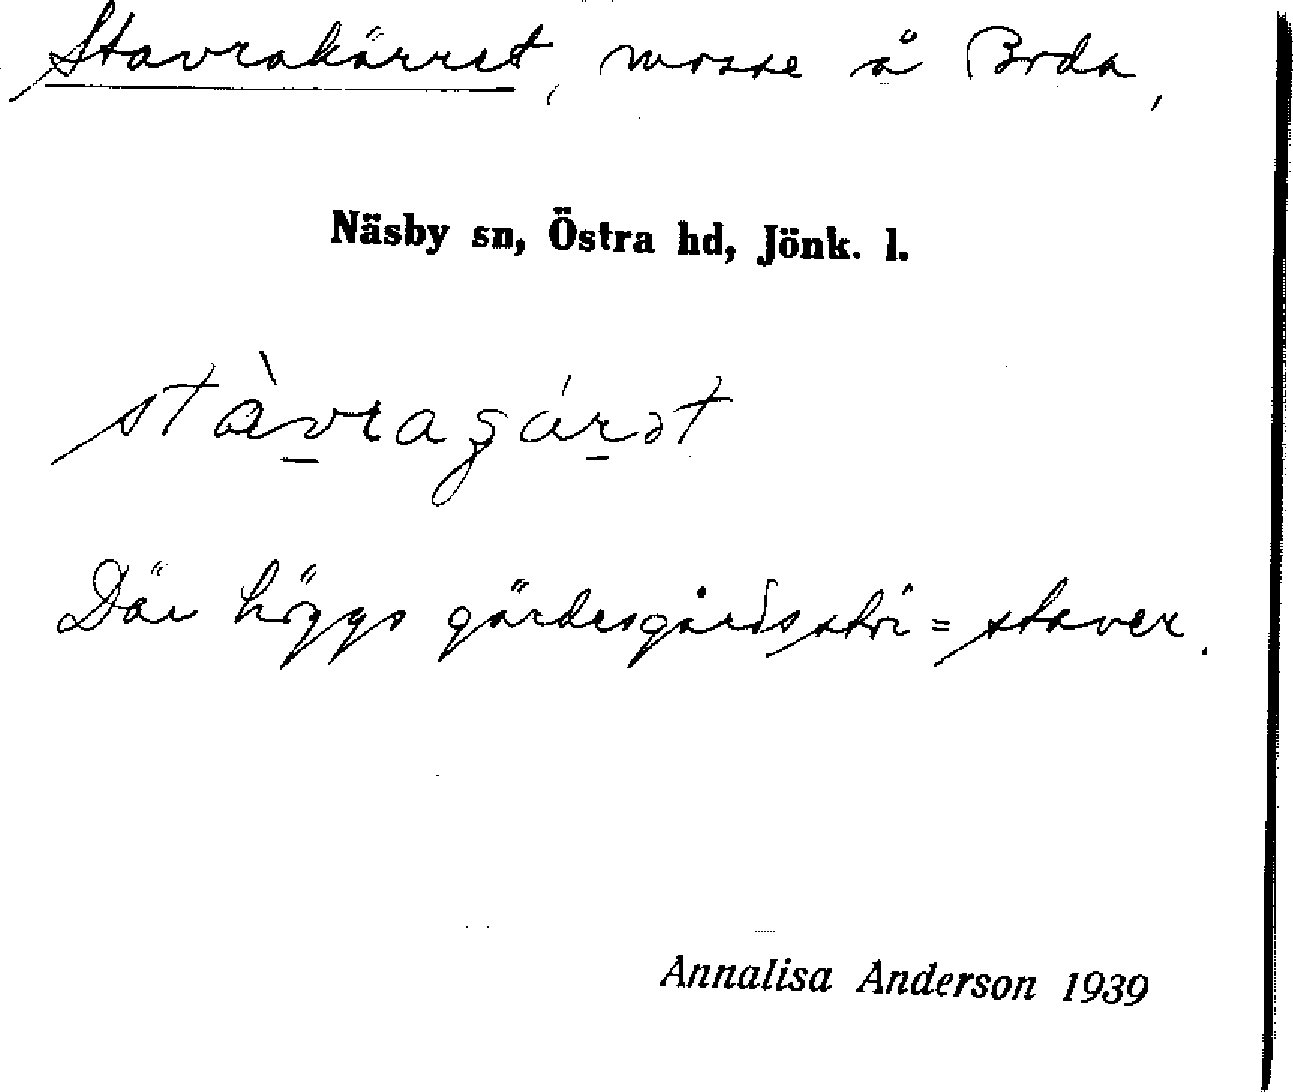 Stavrakärret, mosse å Boda,
Näsby sn, Östra hd, Jönk. l.
Där höggs gärdesgårdsstör = staver.
Annalisa Anderson 1939